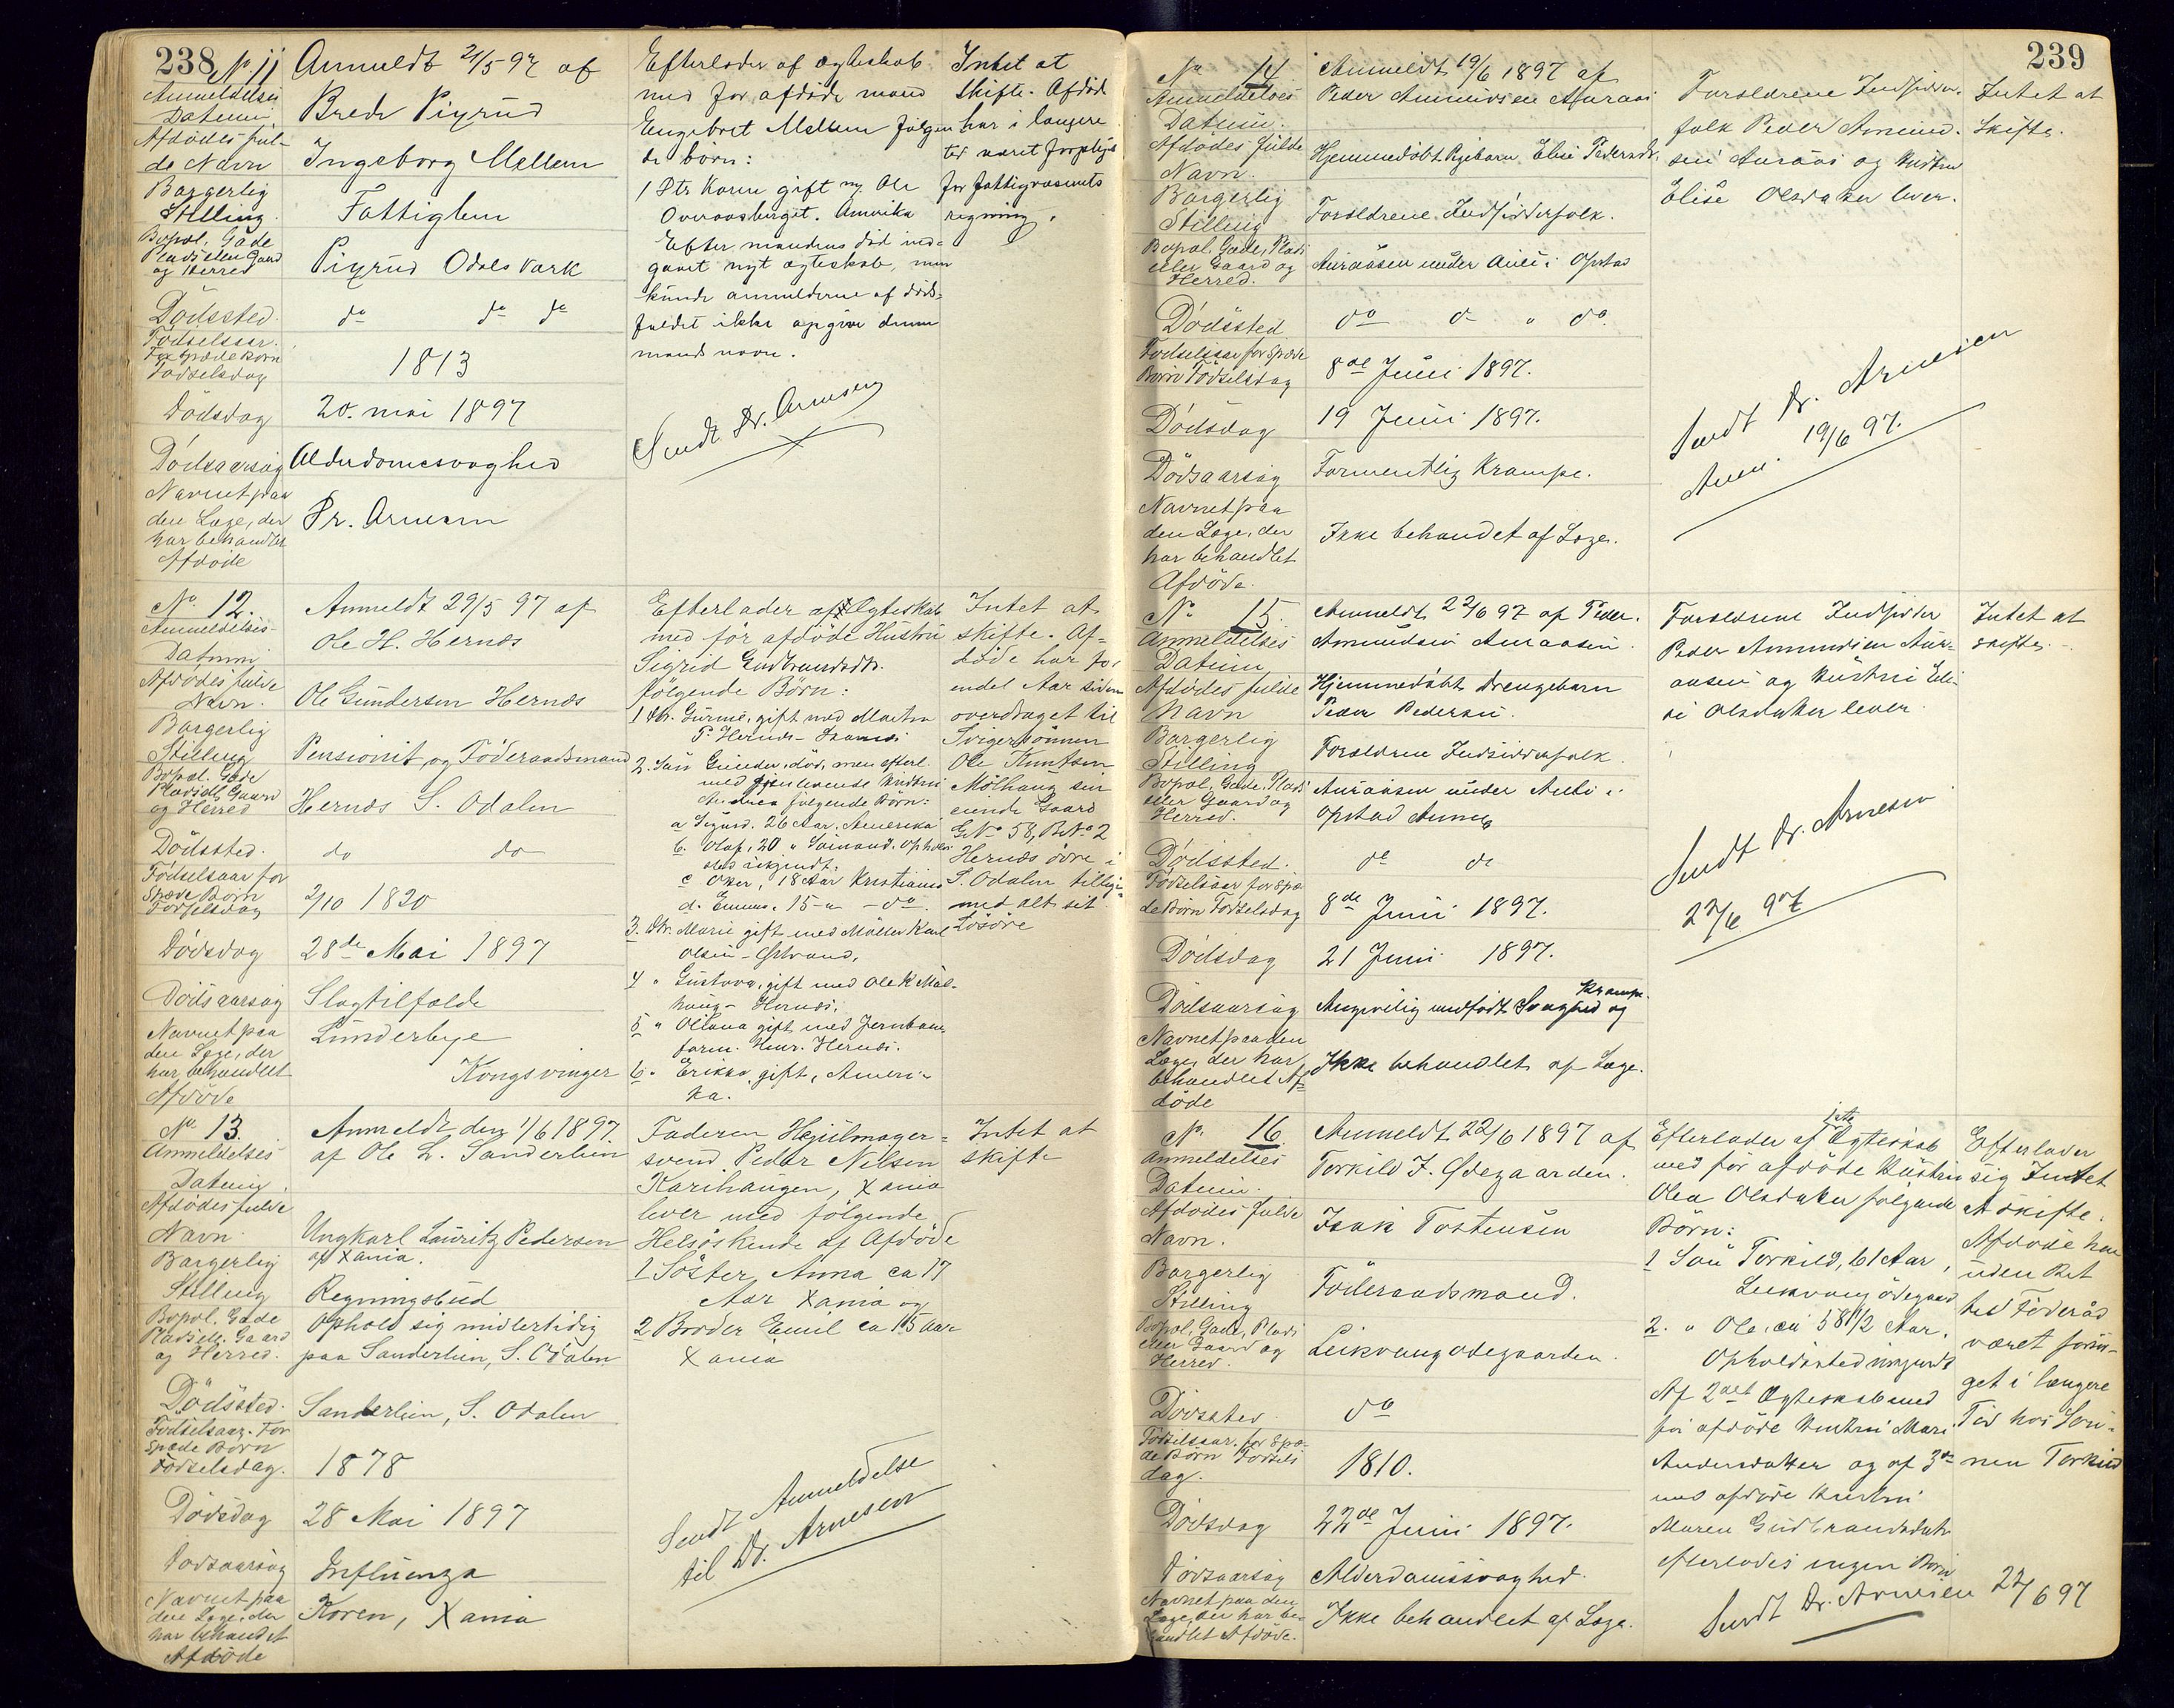 238
No. 11
Anmeldelses
Datum
Anmeldt 21/5 97 af
Brede Pigrud
Afdødes ful-
de Navn
Ingeborg Mellem
Borgerlig
Stilling
Fattiglem
Bopæl, Gade
Plads eller Gaard
og Herred
Pigrud Odals Værk
Dödssted
do do do
Födselsaar.
For spæde Börn
Födselsdag
1813
Dödsdag
20. mai 1897
Dödsaarsag
Alderdomssvaghed
Navnet paa
den Læge, der
har behandlet
Afdöde
Dr. Arnesen
Efterlader af ægteskab
med før afdöde mand
Engebret Mellem følgen
de børn:
1 Dtr Karen gift m. Ole
Overaasberget. Amerika
Efter mandens död ind-
gaaet nyt ægteskab, men
kunde anmelderne af döds-
faldet ikke opgive denne
mands navn.
Sendt Dr. Arnesen
Intet at
skifte. Afdöde
har i længere
tid været forpleiet
for fattigvæsenets
regning.
No. 12.
Anmeldelses-
Datum
Anmeldt 29/5 97 af
Ole H. Hernæs
Afdödes fulde
Navn.
Ole Gundersen Hernæs
Borgerlig
Stilling
Pensionist og Föderaadsmand
Bopæl. Gade
Plads ell. Gaard
og Herred
Hernæs S. Odalen
Dödssted.
do do
Födselsaar for
Spæde Börn
Födselsdag
2/10 1820
Dödsdag
28de Mai 1897
Dödsaarsag
Slagtilfælde
Navnet paa
den Læge, der
har behandlet
Afdöde
Lunderbye
Kongsvinger
Efterlader af Ægteskab
med för afdöde Hustru
Sigrid Gudbrandsdtr.
fölgende Börn:
1 Dtr. Gurine, gift med Martin
P. Hernæs
2. Sön Gunder, död, men efterl.
med gjenlevende Hustru
Andrea fölgende Börn:
a Sigurd. 26 Aar. Amerika
b. Olaf, 20 " Sömand. Opholds
sted ukjendt.
c Oskar, 18 Aar Kristiania
d. Emma, 15 " - do.
3. Dtr. Marie gift med Möller Karl
Olsen - Østvand,
4 " Gustava, gift med Ole K Möl-
haug - Hernæs.
5 " Oliana gift med Jernbane
form. Henr. Hernæs.
6. " Erikka gift, Ameri-
ka.
Intet at
skifte. Af-
döde har for
endel Aar siden
overdraget til
Svigersönnen
Ole Knutsen
Mölhaug sin
eiende Gaard
G.No 58, B.No 2
Hernæs övre i
S. Odalen tillige
med alt sit
Lösöre
No. 13.
Anmeldelses
Datum
Anmeldt den 1/6 1897.
af Ole L. Sanderlien
Afdödes fulde
Navn.
Ungkarl Lauritz Pedersen
af Xania.
Borgerlig
Stilling
Regningsbud
Bopæl. Gade
Plads ell. Gaard
og Herred.
Opholdt sig midlertidig
paa Sanderlien, S. Odalen
Dödssted.
Sanderlien, S. Odalen
Födselsaar. For
spæde Börn
Födselsdag.
1878
Dödsdag
28 Mai 1897
Dödsaarsag
Influenza
Navnet paa
den Læge, der
har behandlet
Afdöde
Koren, Xania
Faderen Hjulmager-
svend Peder Nilsen
Karihaugen, Xania
lever med fölgende
Helsöskende af Afdöde
1 Söster Anna ca 17
Aar Xania og
2 Broder Emil ca 15 Aar
Xania
Sendt Anmeldelse
til Dr. Arnesen
Intet at
skifte
239
No 14
Anmeldelses
Datum.
Anmeldt 19/6 1897 af
Peder Amundsen Auraas
Afdödes fulde
Navn.
Hjemmedöbt Pigebarn Elise Pedersdtr.
Borgerlig
Stilling
Forældrene Indsidderfolk.
Bopæl Gade, Plads
eller Gaard og
Herred.
Auraasen under Auli i Opstad
Dödssted
do do " do.
Födselsaar for spæde
Börn Födselsdag
8de Juni 1897.
Dödsdag
19 Juni 1897.
Dödsaarsag
Formentlig Krampe.
Navnet paa
den Læge, der
har behandlet
Afdöde.
Ikke behandlet af Læge.
Forældrene Indsidder-
folk Peder Amund-
sen Auraas og Hustru
Elise Olsdatter lever.
Sendt Dr. Arnesen
Anm. 19/6 97.
Intet at
Skifte.
No 15.
Anmeldelses
Datum
Anmeldt 22/6 97 af Peder
Amundsen Auraasen.
Afdödes fulde
Navn
Hjemmedöbt Drengebarn
Peder Pedersen.
Borgerlig
Stilling
Forældrene Indsidderfolk.
Bopæl, Gade, Plads
eller Gaard og
Herred.
Auraasen under Auli i
Opstad Annex
Dödssted.
do do
Födselsaar for spæ-
de Börn Födselsdag
8de Juni 1897.
Dödsdag
21 Juni 1897.
Dödsaarsag
Angivelig medfödt Svaghed og
Krampe.
Navnet paa den
Læge, der har
behandlet Af-
döde
Ikke behandlet af Læge.
Forældrene Indsidder
Peder Amundsen Aur-
aasen og Hustru Eli-
se Olsdatter lever.
Sendt Dr. Arnesen
22/6 97
Intet at
skifte.
No. 16.
Anmeldelses
Datum.
Anmeldt 22/6 1897 af
Torkild I. Ødegaarden.
Afdödes fulde
Navn.
Isak Tostensen
Borgerlig
Stilling
Föderaadsmand.
Bopæl, Gade, Plads
eller Gaard og
Herred.
Leikvangödegaarden.
Dödssted.
do
Födselsaar. for Spæ-
de Börn Födsels
dag.
1810.
Dödsdag
22de Juni 1897.
Dödsaarsag
Alderdomssvaghed.
Navnet paa den
Læge, der har be-
handlet Afdöde.
Ikke behandlet af Læge.
Efterlader af 1ste Ægteskab
med för afdöde Hustru
Olea Olsdatter fölgende
Börn:
1 Sön Torkild, 61 Aar,
Leikvangödegaard
2. " Ole, ca 58 1/2 Aar.
Opholdssted
Af 2det Ægteskab med
för afdöde Hustru Mari
Andersdatter og af 3die
med afdöde Hustru
Maren Gudbrandsdatter
efterlades ingen Börn
Sendt Dr. Arnesen 22/6 97
Efterlader
sig Intet
at skifte.
Afdöde har
uden Ret
til Föderåd
været forsör-
get i længere
Tid hos Sön-
nen Torkild